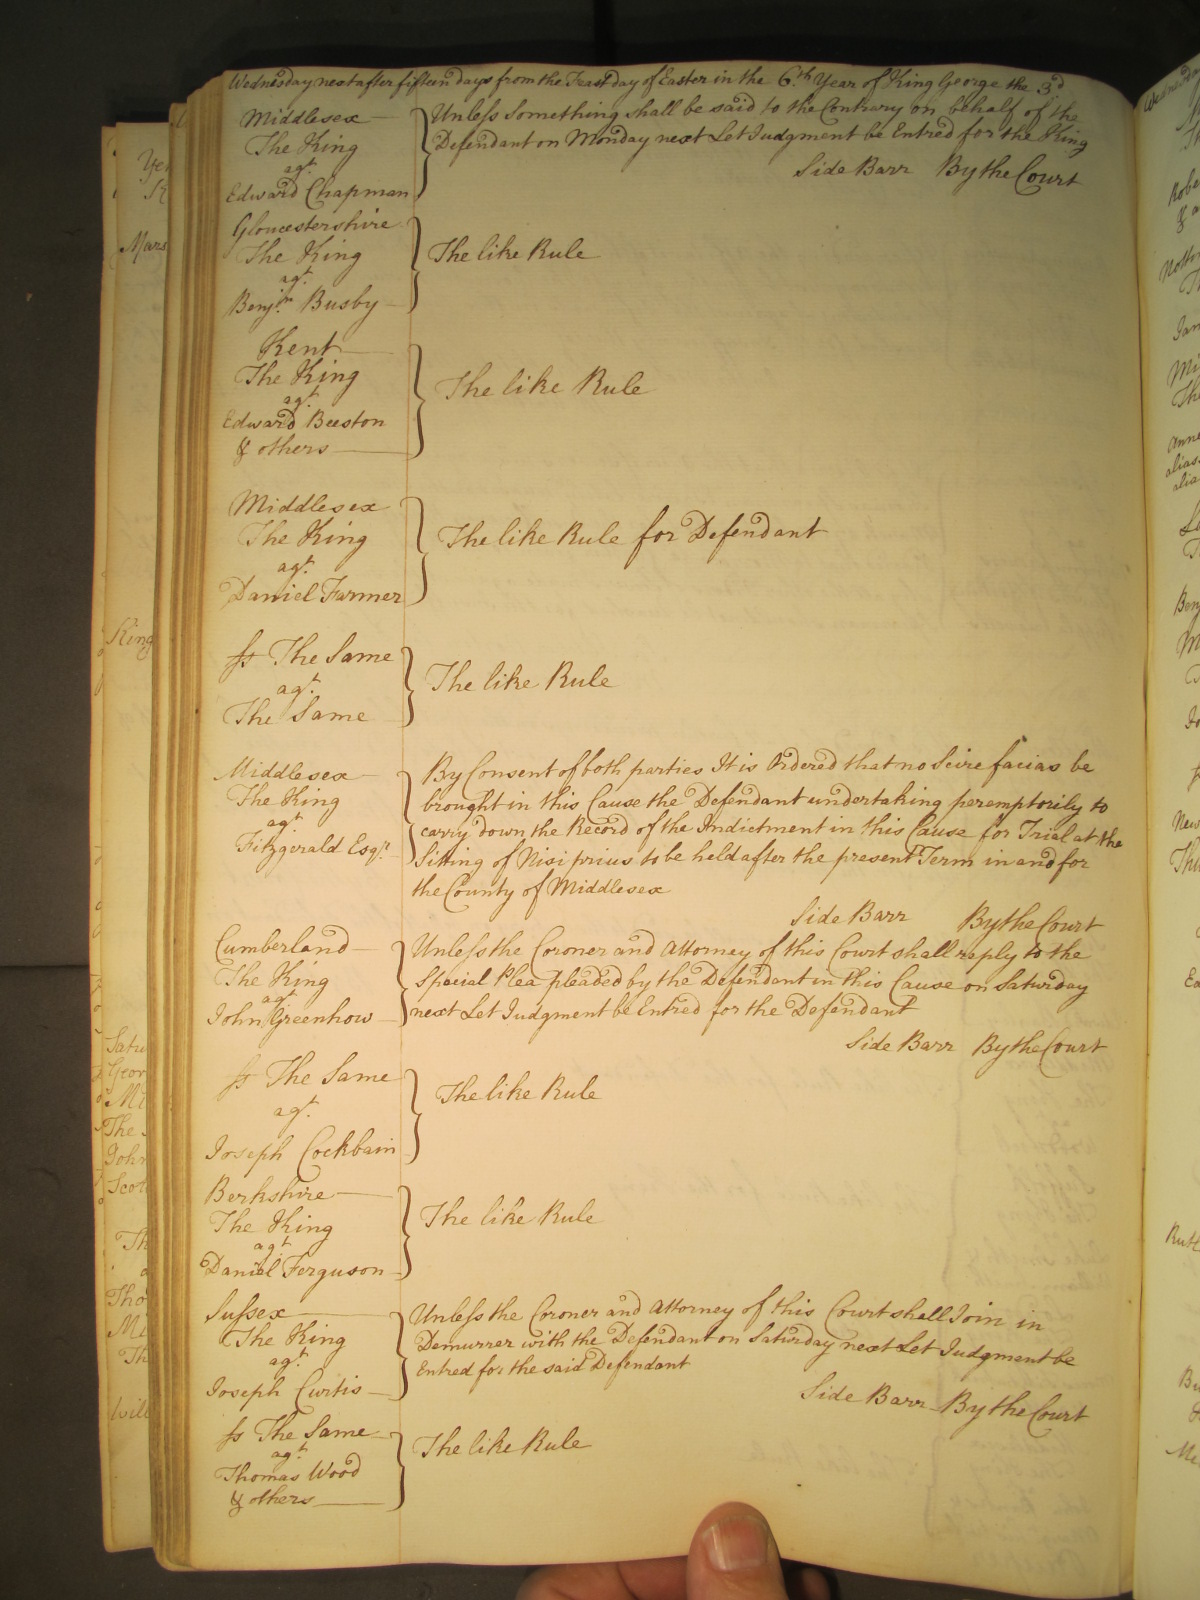 Wednesday next after fifteen days from the Feast day of Easter in the 6th Year of King George the 3d
Middlesex
The King
agt
Edward Chapman
Unless Something shall be said to the Contrary on behalf of the
Defendant on Monday next Let Judgment be Entred for the King
Side Barr By the Court
Gloucestershire
The King
agt
Benjn Busby
The like Rule
Kent
The King
agt
Edward Beeston
& others
The like Rule
Middlesex
The King
agt
Daniel Farmer
The like Rule for Defendant
ss The Same
agt
The Same
The like Rule
Middlesex
The King
agt
Fitzgerald Esqr
By Consent of both parties It is Ordered that no Scire facias be
brought in this Cause the Defendant undertaking peremptorily to
carry down the Record of the Indictment in this Cause for Trial at the
Sitting of Nisi prius to be held after the present Term in and for
the County of Middlesex
Side Barr By the Court
Cumberland
The King
agt
John Greenhow
Unless the Coroner and Attorney of this Court shall reply to the
Special Plea pleaded by the Defendant in this Cause on Saturday
next Let Judgment be Entred for the Defendant
Side Barr By the Court
ss The Same
agt
Joseph Cockbain
The like Rule
Berkshire
The King
agt
Daniel Ferguson
The like Rule
Sussex
The King
agt
Joseph Curtis
Unless the Coroner and Attorney of this Court shall Join in
Demurrer with the Defendant on Saturday next Let Judgment be
Entred for the said Defendant
Side Barr By the Court
ss The Same
agt
Thomas Wood
& others
The like Rule